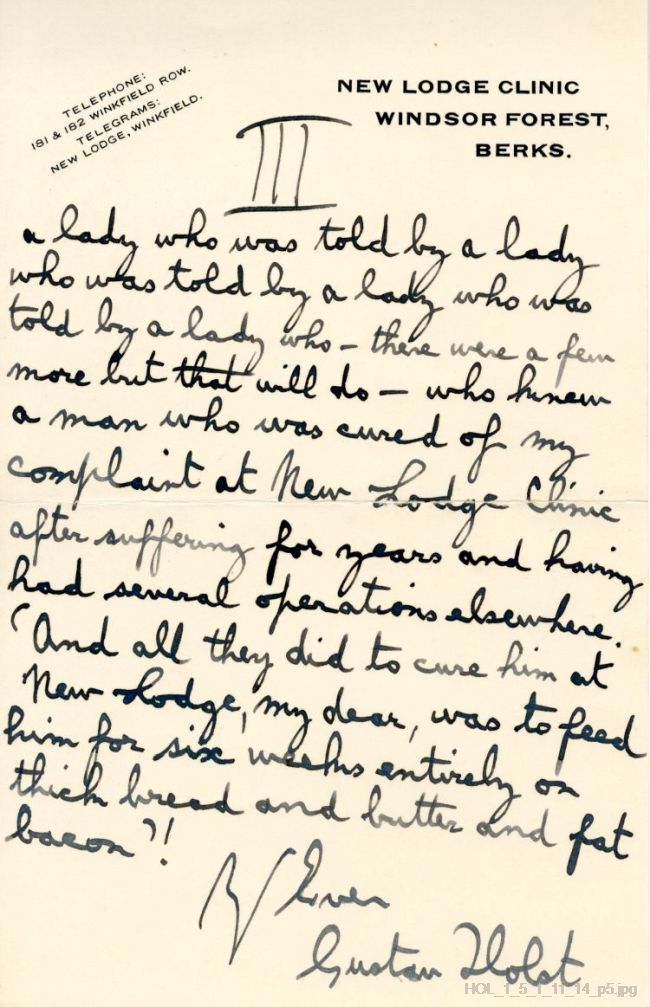 TELEPHONE:
181 & 182 WINKFIELD ROW.
TELEGRAMS:
NEW LODGE, WINKFIELD.
NEW LODGE CLINIC
WINDSOR FOREST,
BERKS.
III
a lady who was told by a lady
who was told by a lady who was
told by a lady who – there were a few
more but that will do – who knew
a man who was cured of my
complaint at New Lodge Clinic
after suffering for years and having
had several operations elsewhere.
'And all they did to cure him at
New Lodge, my dear, was to feed
him for six weeks entirely on
thick bread and butter and fat
bacon'!
Yr Ever
Gustav Holst
HOL_1_5_1_11_14_p5.jpg